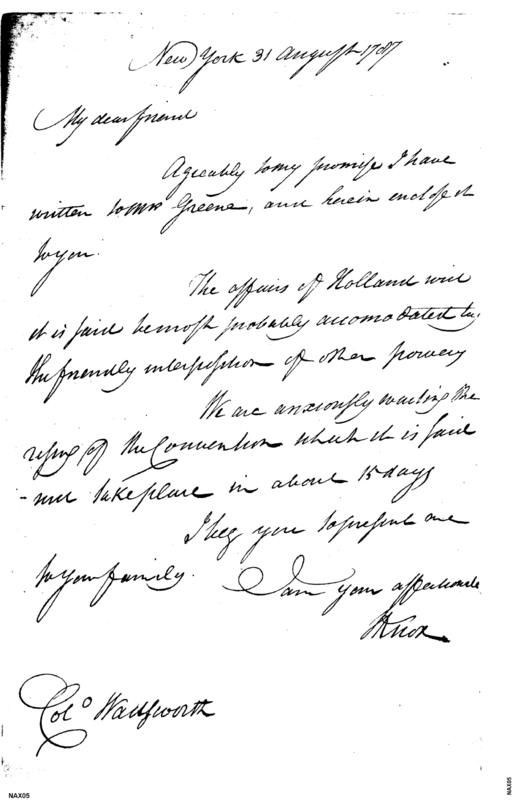 New York 31 August 1787
My dear friend
Agreably to my promise I have
written to Mrs Greene, and herein enclose it
to you.
The affairs of Holland will
it is said be most probably accomodated by
the friendly interposition of other powers
We are anxiously waiting the
rising of the Convention which it is said
will take place in about 15 days
I beg you to present me
to your family. I am your affectionate
HKnox
Colo Wadsworth
NAX05
NAX05